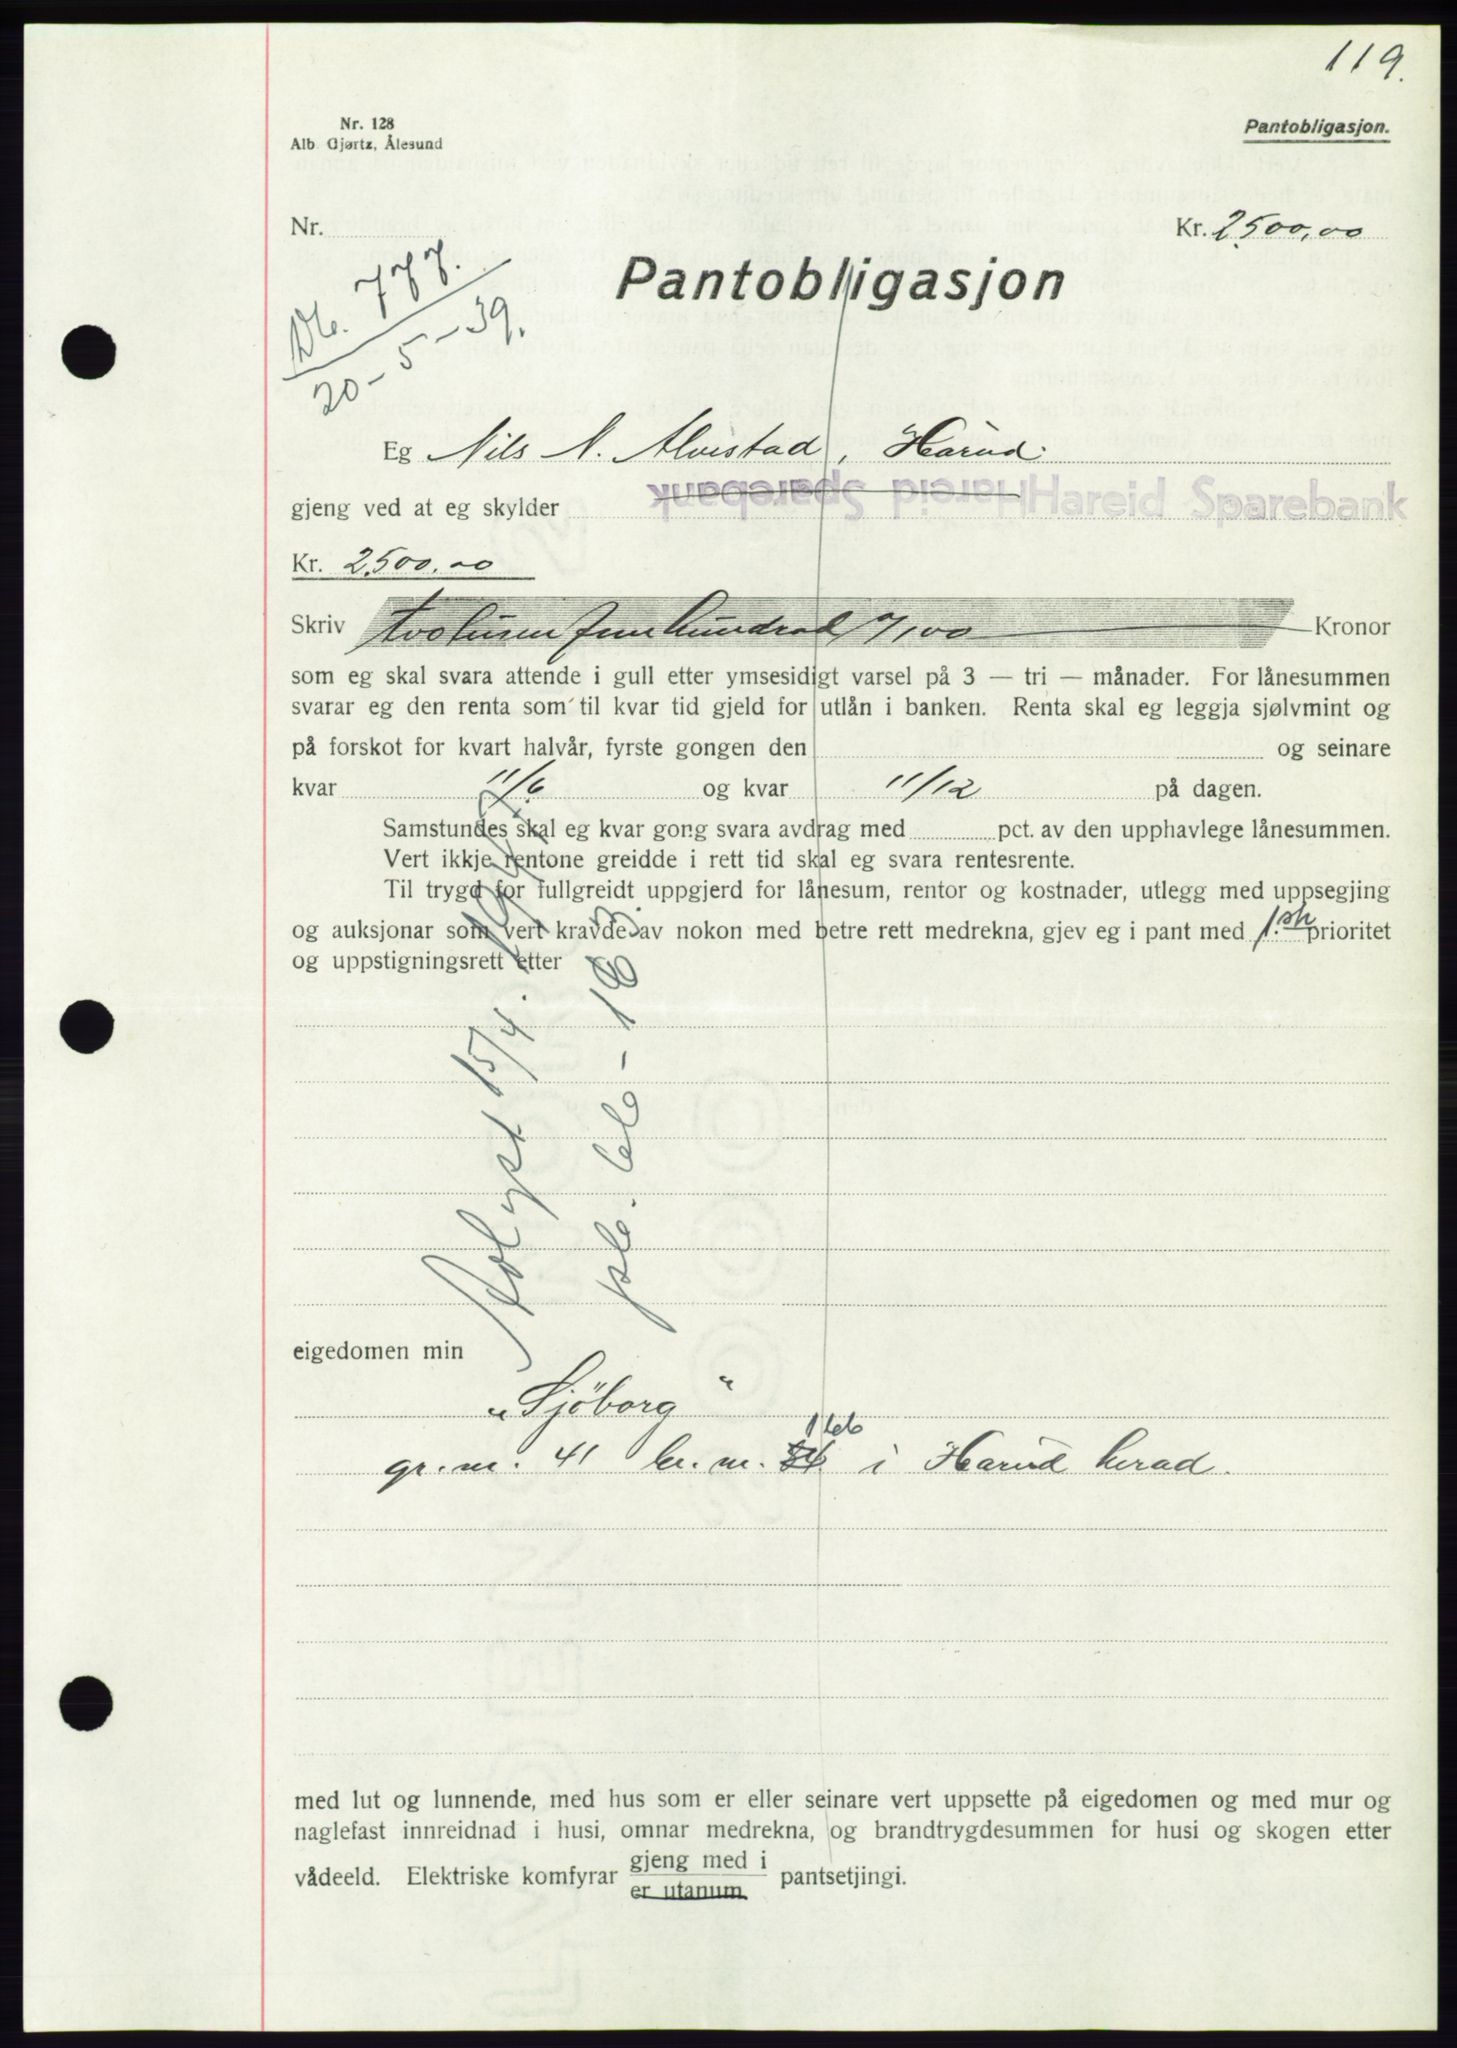 119.
Nr. 128
Alb. Gjørtz, Ålesund
Pantobligasjon.
Nr.
Kr. 2500,00
Pantobligasjon
No. 777.
20-5-39.
Eg Nils N. Alvestad, Hareid.
gjeng ved at eg skylder Hareid Sparebank Hareid Sparebank
Kr. 2500,00
Skriv totusen fem hundrad 0/100 Kronor
som eg skal svara attende i gull etter ymsesidigt varsel på 3 — tri — månader. For lånesummen
svarar eg den renta som til kvar tid gjeld for utlån i banken. Renta skal eg leggja sjølvmint og
på forskot for kvart halvår, fyrste gongen den og seinare
kvar 11/6 og kvar 11/12 på dagen.
Samstundes skal eg kvar gong svara avdrag med pct. av den upphavlege lånesummen.
Vert ikkje rentone greidde i rett tid skal eg svara rentesrente.
Til trygd for fullgreidt uppgjerd for lånesum, rentor og kostnader, utlegg med uppsegjing
og auksjonar som vert kravde av nokon med betre rett medrekna, gjev eg i pant med 1. prioritet
og uppstigningsrett etter
Avlyst 15/4. 1947.
eigedomen min
„Sjöborg"
gr.nr. 41 br.nr. 166 i Hareid herad.
med lut og lunnende, med hus som er eller seinare vert uppsette på eigedomen og med mur og
naglefast innreidnad i husi, omnar medrekna, og brandtrygdesummen for husi og skogen etter
vådeeld. Elektriske komfyrar gjeng med i pantsetjingi.
er utanum